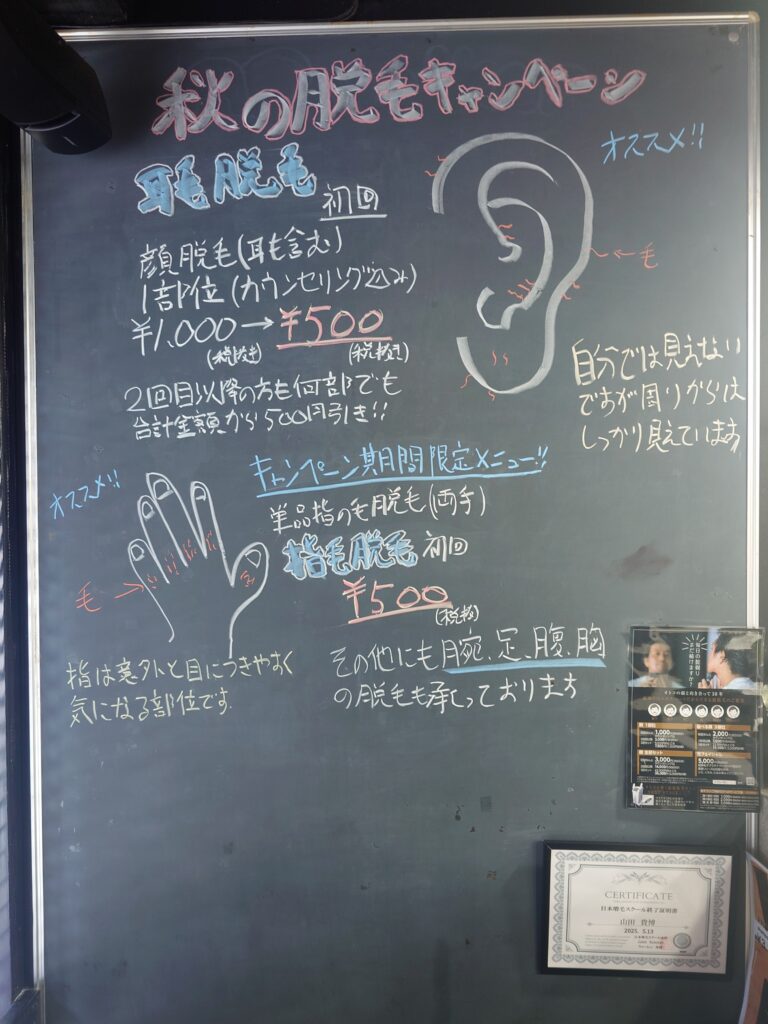 秋の脱毛キャンペーン
耳毛脱毛
初回
オススメ!!
顔脱毛(耳も含む)
1部位(カウンセリング込み)
¥1,000→¥500
(税抜き) (税抜き)
←毛
2回目以降の方も何部でも
合計金額から500円引き!!
自分では見えない
ですが周りからは
しっかり見えています
キャンペーン期間限定メニュー!!
オススメ!!
単品指の毛脱毛(両手)
指毛脱毛 初回
¥500
(税抜)
毛→
指は意外と目につきやすく
気になる部位です
その他にも腕、足、腹、胸
の脱毛も承っております
毎日の髭剃り
まだ続けますか?
1,000
2,000
3,000
5,000
CERTIFICATE
日本脱毛スクール終了証明書
山田 貴博
2025. 5.13